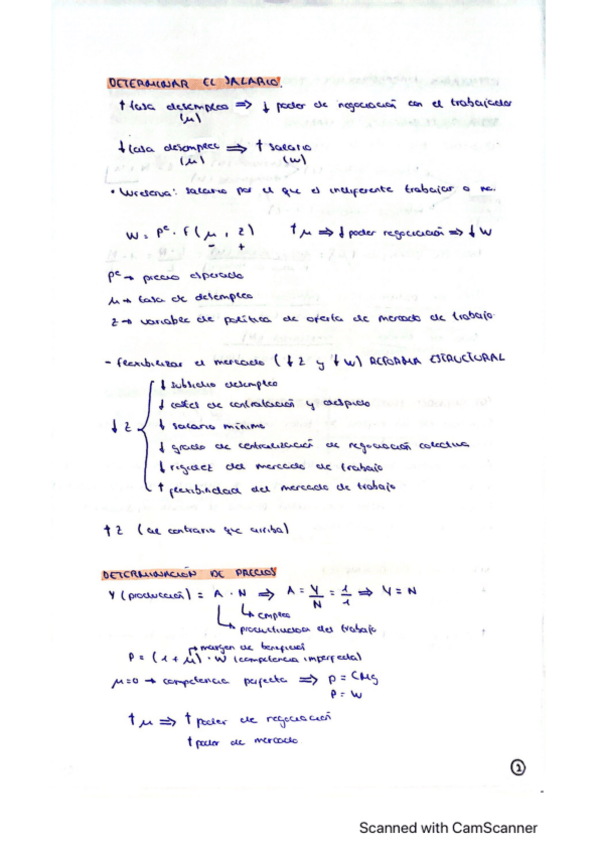 DETERMINAR EL SALARIO.
↑ tasa desempleo ⇒ ↓ poder de negociación con el trabajador
(μ)
↓ tasa desempleo ⇒ ↑ salario
(μ) (w)
• Wreserva: salario por el que es indiferente trabajar o no.
W = Pᵉ · F(μ, z) ↑ μ ⇒ ↓ poder negociación ⇒ ↓ W
- +
Pᵉ → precio esperado
μ → tasa de desempleo
z → variables de política de oferta de mercado de trabajo
- flexibilizar el mercado (↓ z y ↓ w) REFORMA ESTRUCTURAL
↓ subsidio desempleo
↓ costes de contratación y despido
↓ z { ↓ salario mínimo
↓ grado de centralización de negociación colectiva
↓ rigidez del mercado de trabajo
↑ flexibilidad del mercado de trabajo
↑ z (al contrario que arriba)
DETERMINACIÓN DE PRECIOS
Y (producción) = A · N ⇒ A = Y/N = 1/1 ⇒ Y = N
↳ empleo
↳ productividad del trabajo
→ margen de beneficios
P = (1 + μ) · W (competencia imperfecta)
μ = 0 → competencia perfecta ⇒ P = CMg
P = W
↑ μ ⇒ ↑ poder de negociación
↑ poder de mercado
1
Scanned with CamScanner